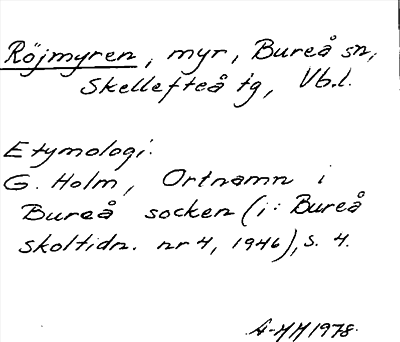 Röjmyren, myr, Bureå sn,
Skellefteå tg, Vb.l.
Etymologi:
G. Holm, Ortnamn i
Bureå socken (i: Bureå
skoltidn. nr 4, 1946), s. 4.
A-MH 1978.